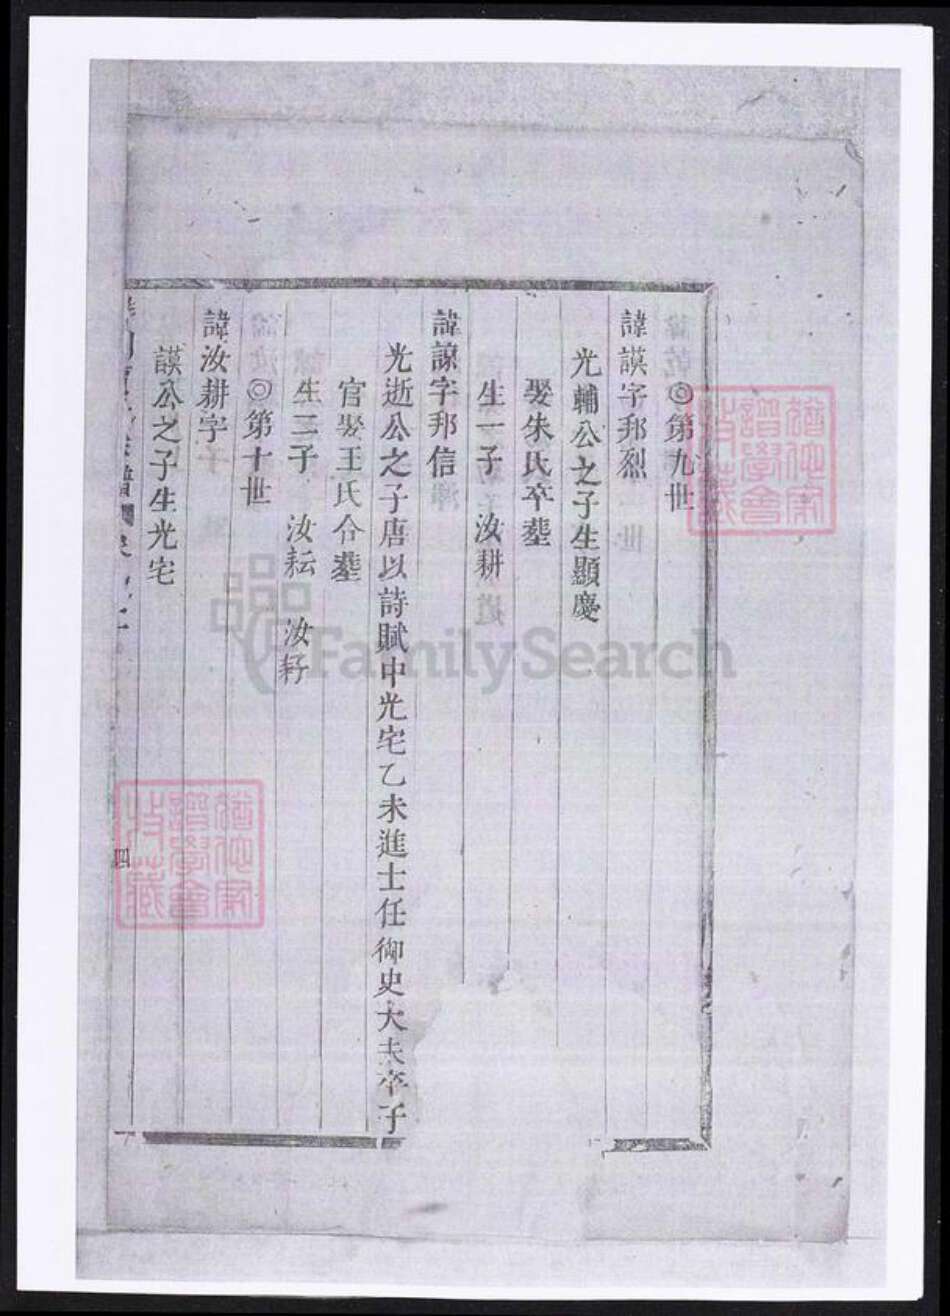 ◎第九世
諱謨字邦烈
光輔公之子生顯慶
娶朱氏卒塟
生一子 汝耕
諱諒字邦信
光逝公之子唐以詩賦中光宅乙未進士任御史大夫卒于
官娶王氏合塟
生二子 汝耘 汝耔
◎第十世
諱汝耕字
謨公之子生光宅
譜
四
FamilySearch